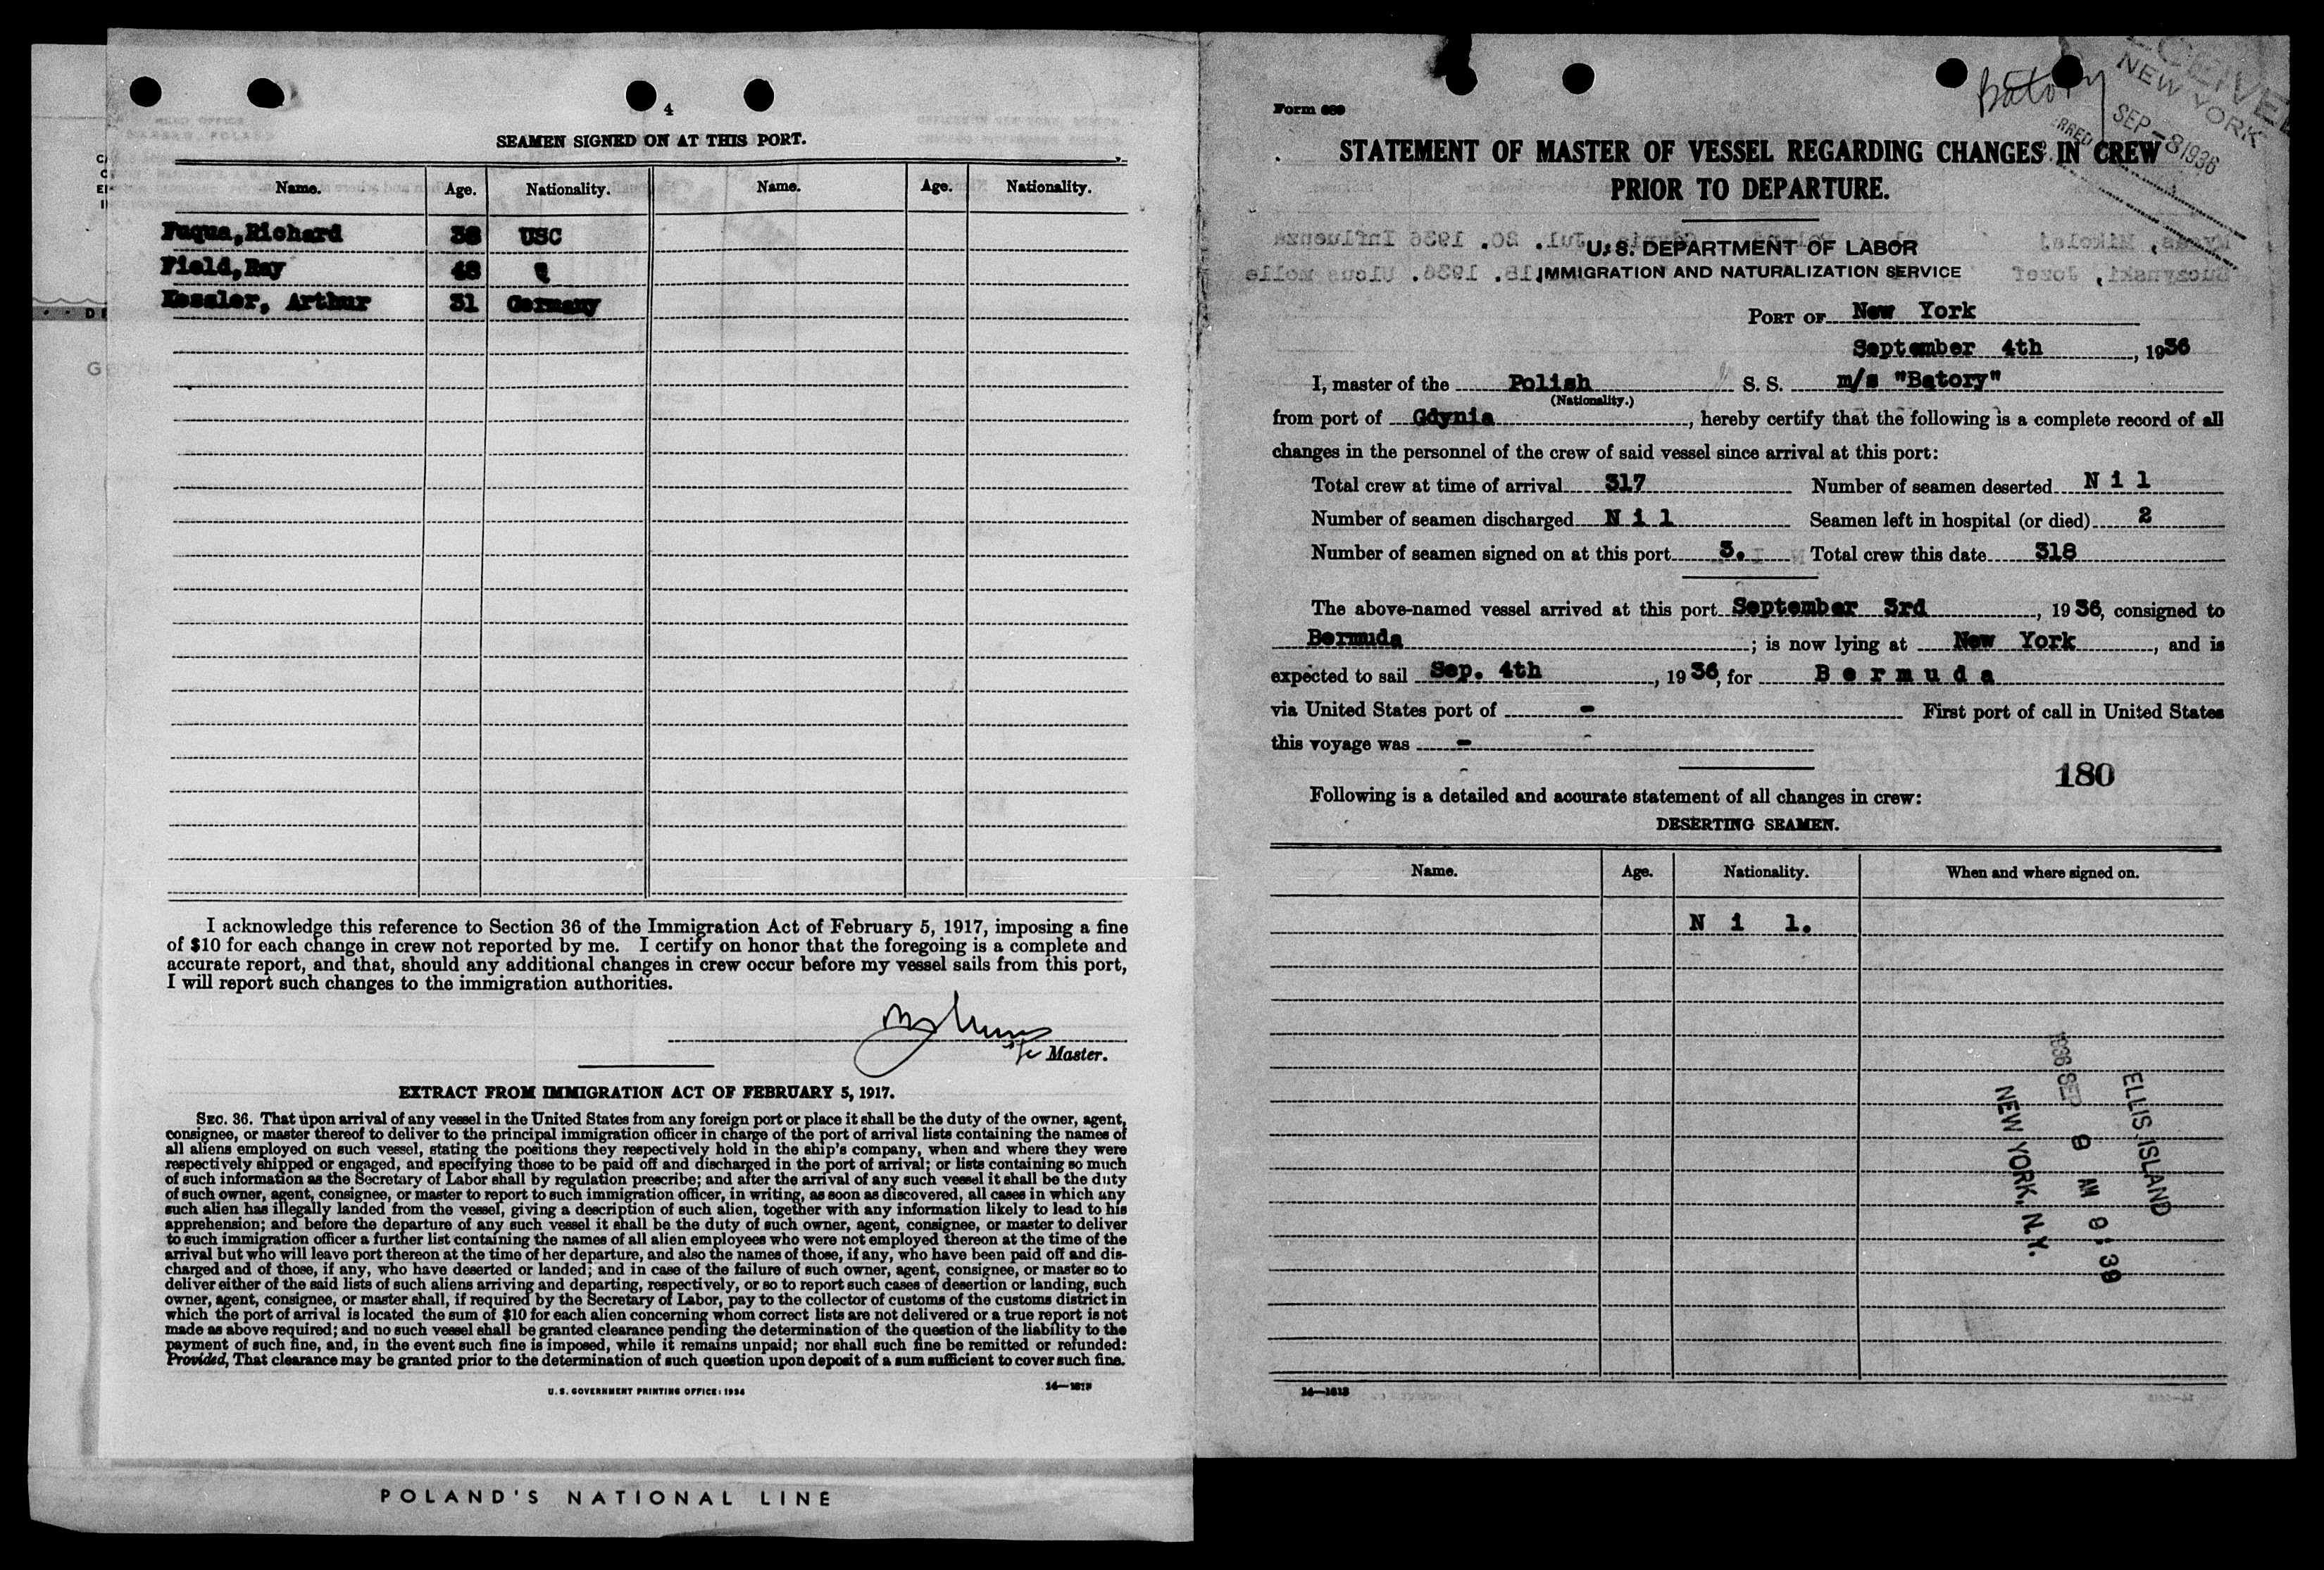 4
SEAMEN SIGNED ON AT THIS PORT.
Name. Age. Nationality. Name. Age. Nationality.
Fuqua,Richard 38 USC
Field,Ray 48
Kessler, Arthur 31 Germany
I acknowledge this reference to Section 36 of the Immigration Act of February 5, 1917, imposing a fine
of $10 for each change in crew not reported by me. I certify on honor that the foregoing is a complete and
accurate report, and that, should any additional changes in crew occur before my vessel sails from this port,
I will report such changes to the immigration authorities.
Master.
EXTRACT FROM IMMIGRATION ACT OF FEBRUARY 5, 1917.
SEC. 36. That upon arrival of any vessel in the United States from any foreign port or place it shall be the duty of the owner, agent,
consignee, or master thereof to deliver to the principal immigration officer in charge of the port of arrival lists containing the names of
all aliens employed on such vessel, stating the positions they respectively hold in the ship's company, when and where they were
respectively shipped or engaged, and specifying those to be paid off and discharged in the port of arrival; or lists containing so much
of such information as the Secretary of Labor shall by regulation prescribe; and after the arrival of any such vessel it shall be the duty
of such owner, agent, consignee, or master to report to such immigration officer, in writing, as soon as discovered, all cases in which any
such alien has illegally landed from the vessel, giving a description of such alien, together with any information likely to lead to his
apprehension; and before the departure of any such vessel it shall be the duty of such owner, agent, consignee, or master to deliver
to such immigration officer a further list containing the names of all alien employees who were not employed thereon at the time of the
arrival but who will leave port thereon at the time of her departure, and also the names of those, if any, who have been paid off and dis-
charged and of those, if any, who have deserted or landed; and in case of the failure of such owner, agent, consignee, or master so to
deliver either of the said lists of such aliens arriving and departing, respectively, or so to report such cases of desertion or landing, such
owner, agent, consignee, or master shall, if required by the Secretary of Labor, pay to the collector of customs of the customs district in
which the port of arrival is located the sum of $10 for each alien concerning whom correct lists are not delivered or a true report is not
made as above required; and no such vessel shall be granted clearance pending the determination of the question of the liability to the
payment of such fine, and, in the event such fine is imposed, while it remains unpaid; nor shall such fine be remitted or refunded:
Provided, That clearance may be granted prior to the determination of such question upon deposit of a sum sufficient to cover such fine.
U. S. GOVERNMENT PRINTING OFFICE: 1934 14—1618
POLAND'S NATIONAL LINE
Batory
NEW YORK
SEP -8 1936
Form 689
STATEMENT OF MASTER OF VESSEL REGARDING CHANGES IN CREW
PRIOR TO DEPARTURE.
U. S. DEPARTMENT OF LABOR
IMMIGRATION AND NATURALIZATION SERVICE
PORT OF New York
September 4th, 1936
I, master of the Polish S. S. m/s "Batory"
(Nationality.)
from port of Gdynia, hereby certify that the following is a complete record of all
changes in the personnel of the crew of said vessel since arrival at this port:
Total crew at time of arrival 317 Number of seamen deserted N i l
Number of seamen discharged N i l Seamen left in hospital (or died) 2
Number of seamen signed on at this port 3. Total crew this date 318
The above-named vessel arrived at this port September 3rd, 1936, consigned to
Bermuda; is now lying at New York, and is
expected to sail Sep. 4th, 1936, for B e r m u d a
via United States port of - First port of call in United States
this voyage was -
180
Following is a detailed and accurate statement of all changes in crew:
DESERTING SEAMEN.
Name. Age. Nationality. When and where signed on.
N i l.
ELLIS ISLAND
1936 SEP 8 AM 9:39
NEW YORK, N.Y.
14—1618